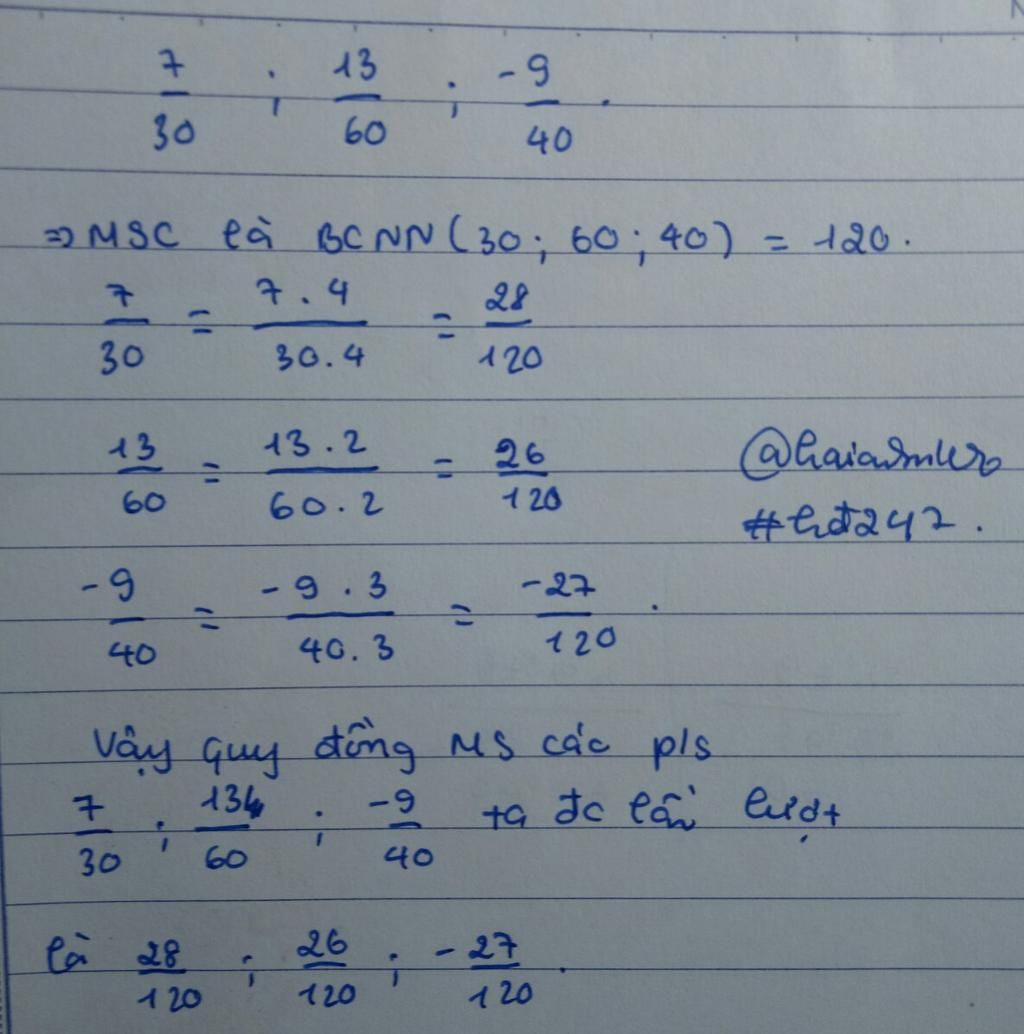 7/30 ; 13/60 ; -9/40 .
⇒ MSC là BCNN(30; 60; 40) = 120.
7/30 = 7.4/30.4 = 28/120
13/60 = 13.2/60.2 = 26/120
#hđ247.
-9/40 = -9.3/40.3 = -27/120 .
Vậy quy đồng MS các p/s
7/30 ; 13/60 ; -9/40 ta đc lần lượt
là 28/120 ; 26/120 ; -27/120 .